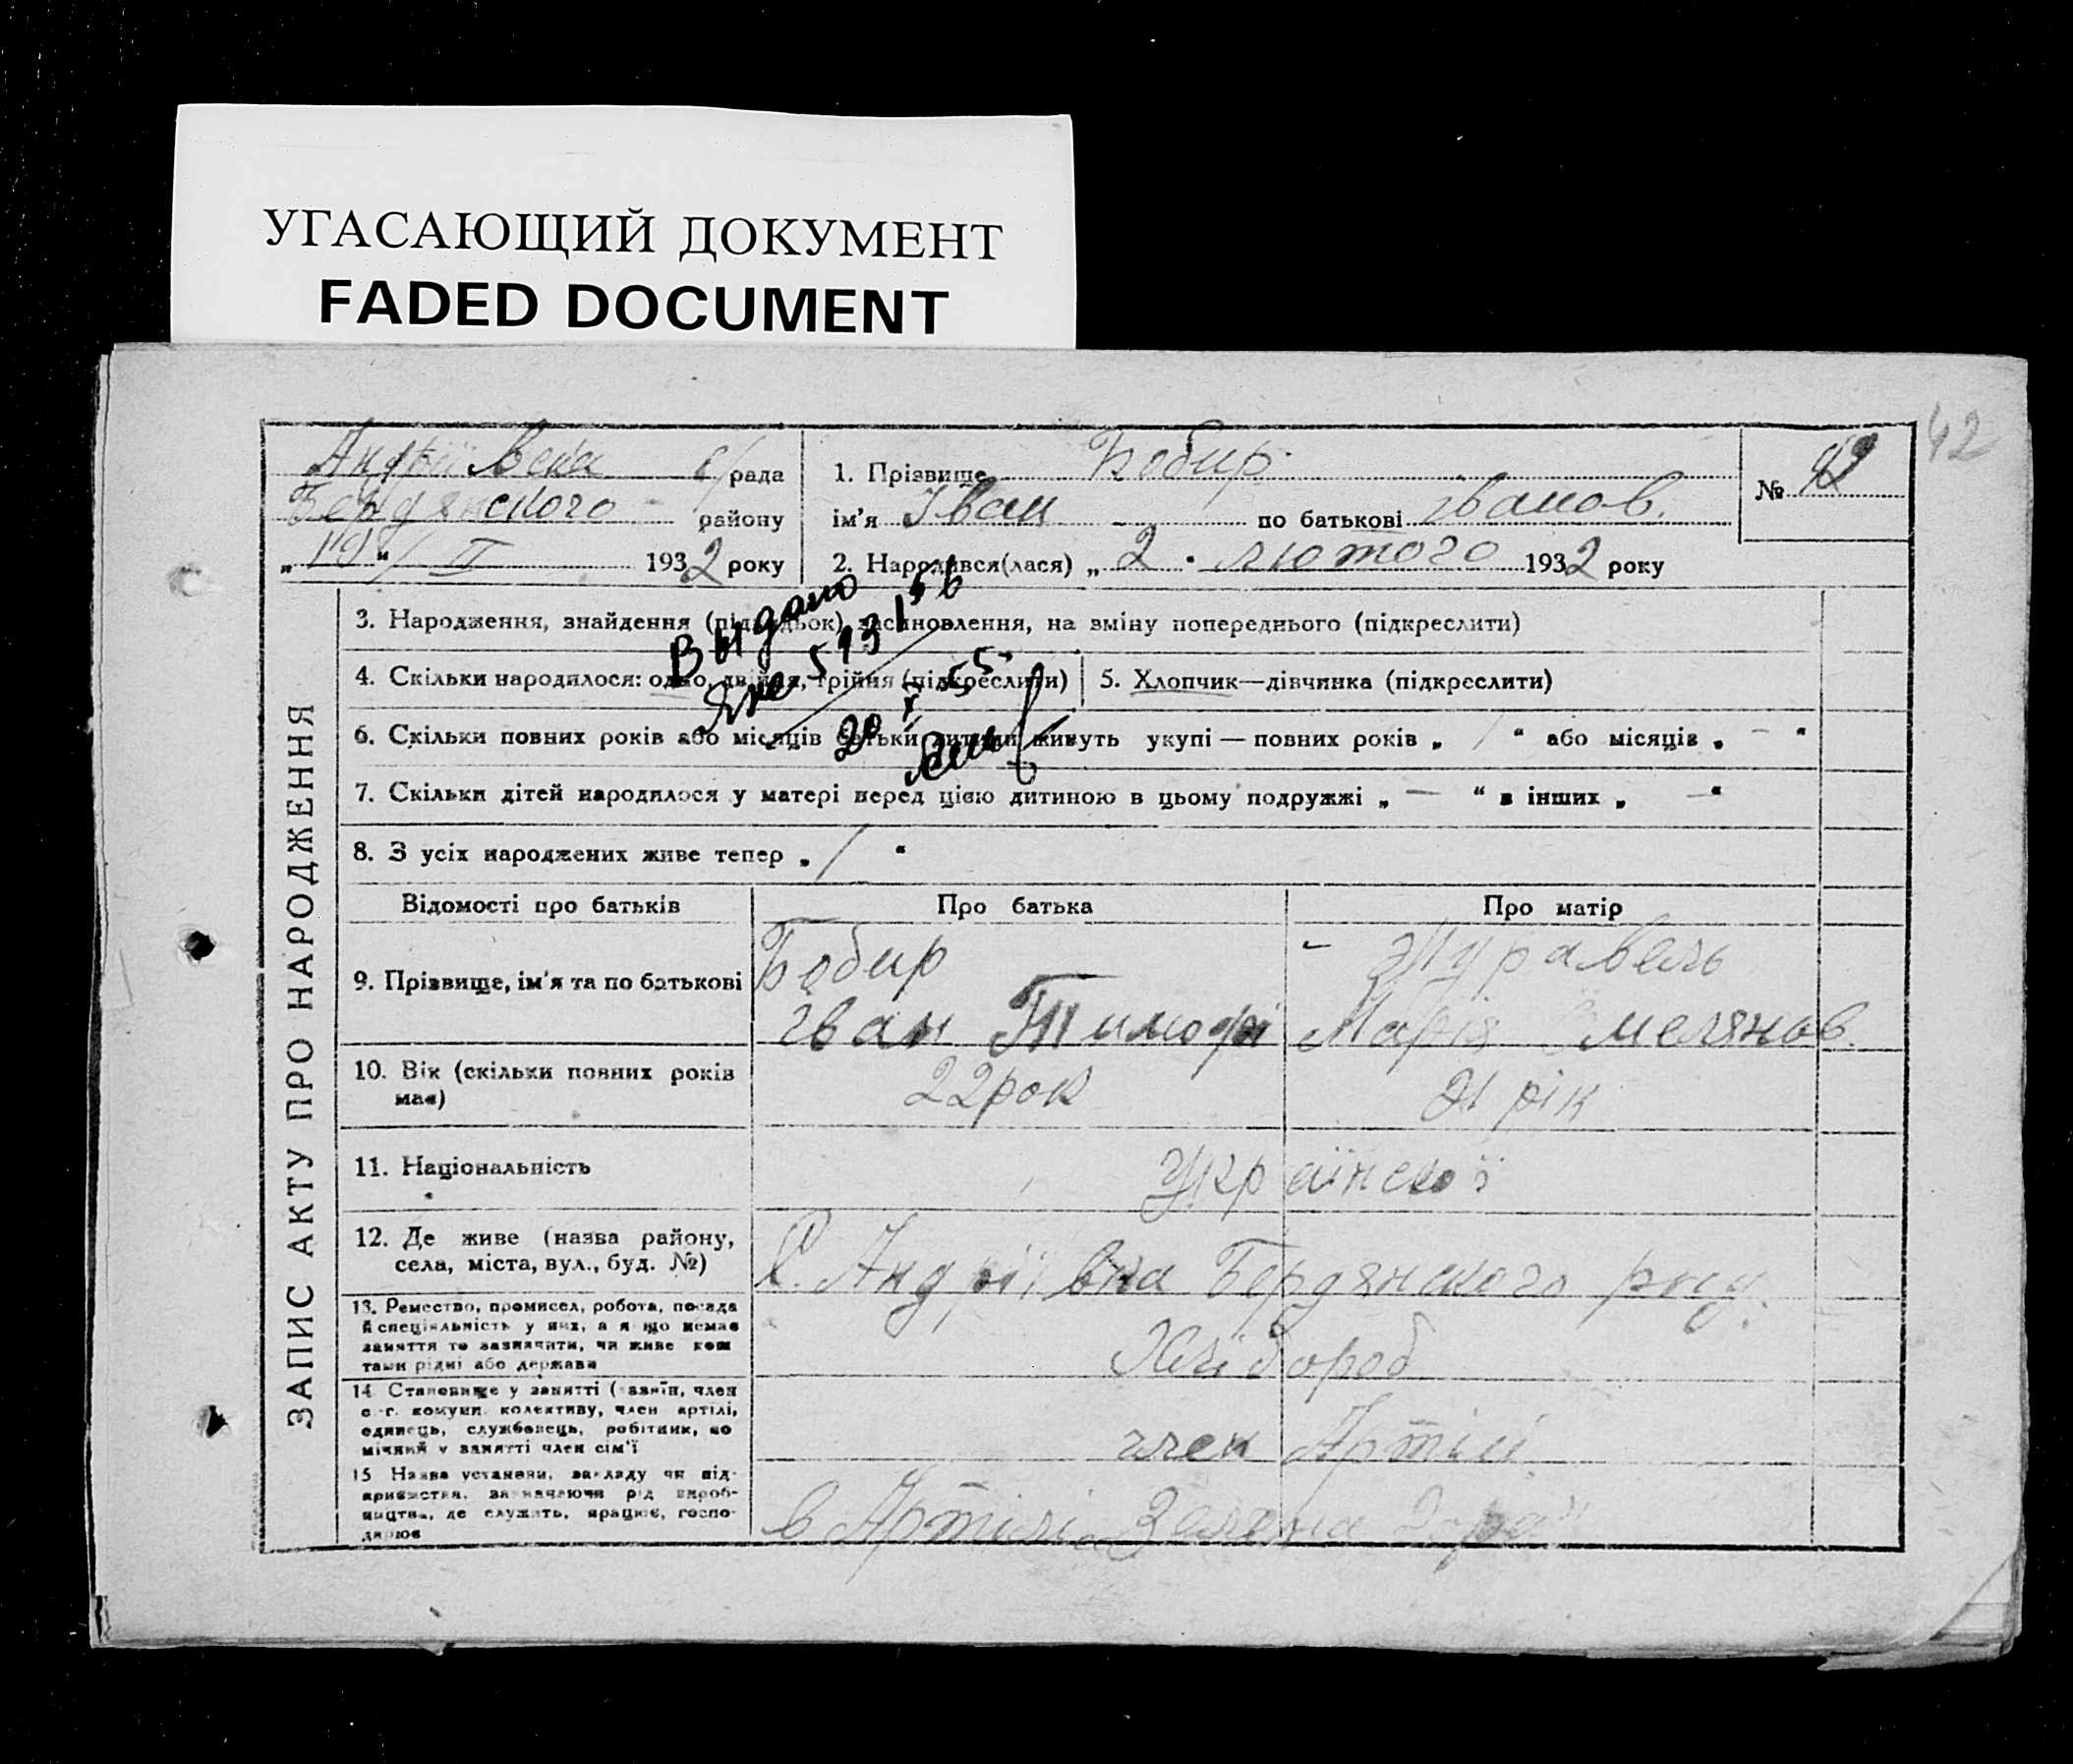 УГАСАЮЩИЙ ДОКУМЕНТ
FADED DOCUMENT
42
Андріївска с/рада
Бердянского району
„19“/ II 1932 року
1. Прізвище Бобир.
ім'я Іван по батькові Іванов.
2. Народився(лася) „2. лютого 1932 року
№ 42
ЗАПИС АКТУ ПРО НАРОДЖЕННЯ
3. Народження, знайдення (підкидьок) усиновлення, на зміну попереднього (підкреслити)
4. Скільки народилося: одно, двійня, трійня (підкреслити)
5. Хлопчик—дівчинка (підкреслити)
6. Скільки повних років або місяців батьки дитини живуть укупі — повних років „ 1 “ або місяців „ — “
7. Скільки дітей народилося у матері перед цією дитиною в цьому подружжі „ — “ в інших „ —“
8. З усіх народжених живе тепер „ 1 “
Выдано
20
55
Відомості про батьків
Про батька
Про матір
9. Прізвище, ім'я та по батькові
Бобир
Іван Тимофі
- Журавель
Марія Омелянов.
10. Вік (скільки повних років
має)
22 рок
21 рік
11. Національність
Української
12. Де живе (назва району,
села, міста, вул., буд. №)
С. Андріївка Бердянского рну.
13. Ремество, промисел, робота, посада
й спеціяльність у них, а якщо немає
заняття то зазначити, чи живе кош
тами рідні або держави
Хлібороб
14. Становище у занятті (хазяїн, член
с.-г. комуни колективу, член артілі,
одинець, службовець, робітник, по
мічний у занятті член сім'ї
член Артілі
15 Назва установи, закладу чи під-
приємства, зазначаючи рід вироб-
ництва, де служить, працює, госпо-
дарює
в Артілі Зелена